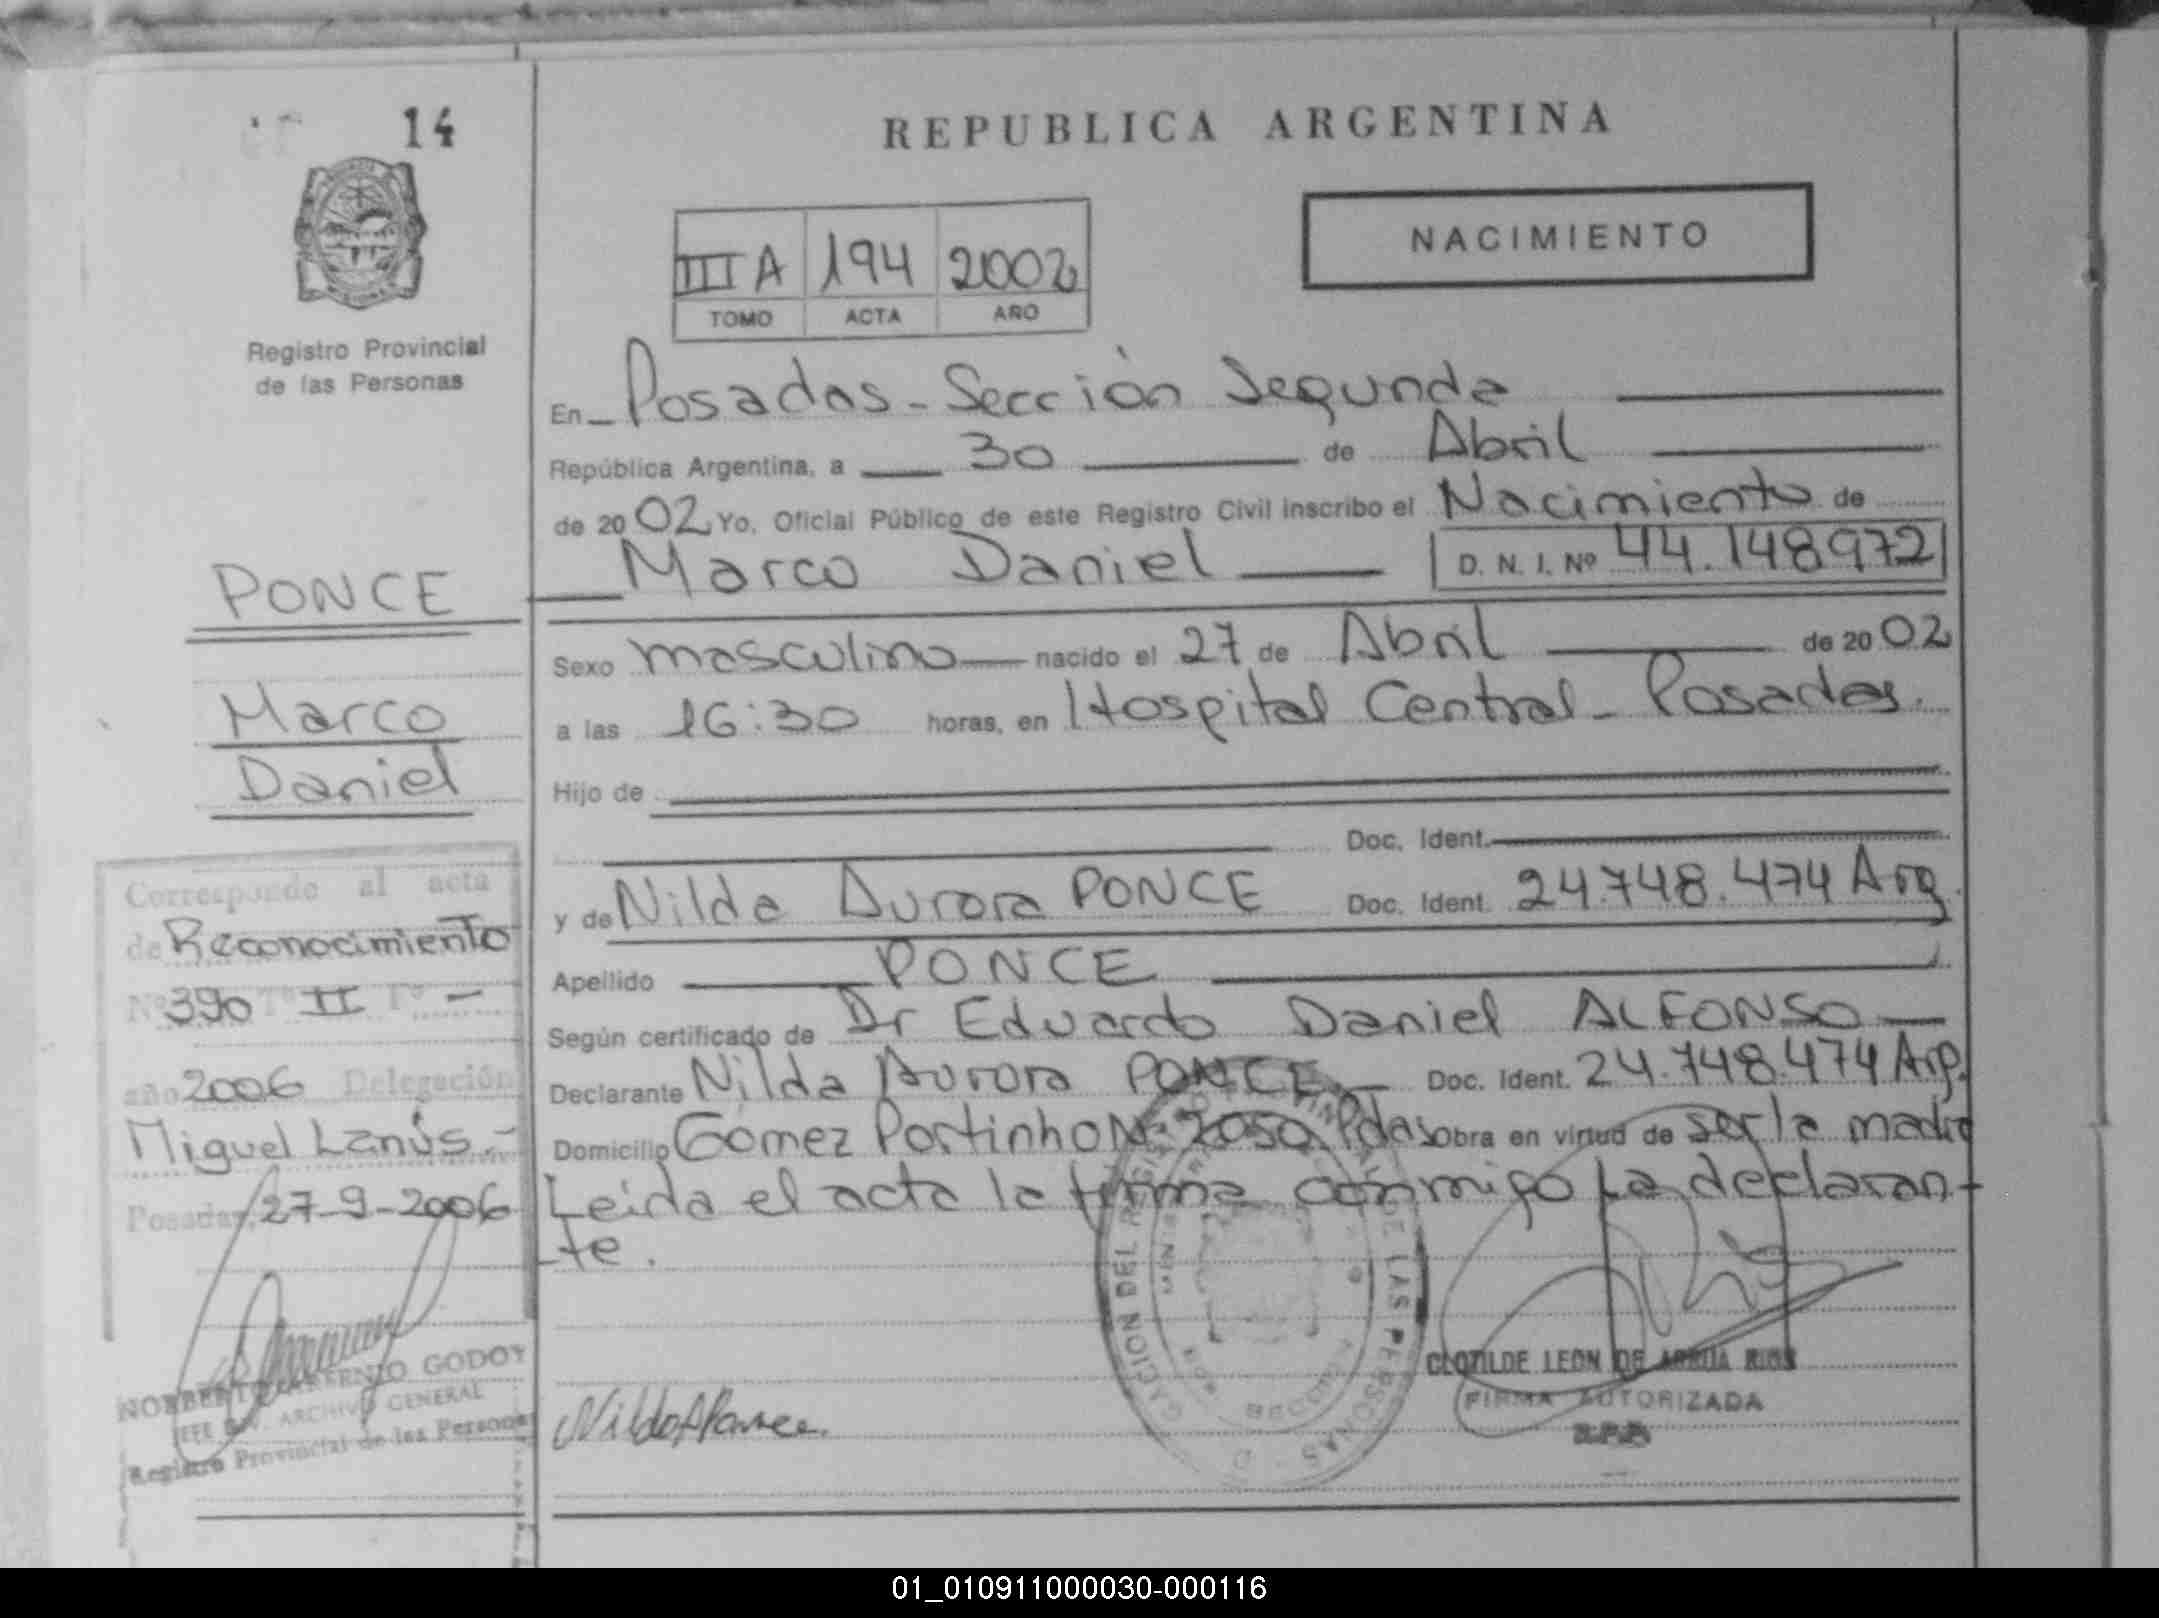 14
REPUBLICA ARGENTINA
NACIMIENTO
III A 194 2002
TOMO ACTA AÑO
Registro Provincial
de las Personas
En Posadas - Sección Segunda
República Argentina, a 30 de Abril
de 2002 Yo, Oficial Público de este Registro Civil inscribo el Nacimiento de
Marco Daniel D. N. I. Nº 44.148972
PONCE
Marco
Daniel
Sexo masculino nacido el 27 de Abril de 2002
a las 16:30 horas, en Hospital Central - Posadas.
Hijo de
Doc. Ident.
y de Nilda Aurora PONCE Doc. Ident. 24.748.474 Arg.
Apellido PONCE
Según certificado de Dr Eduardo Daniel ALFONSO
Declarante Nilda Aurora PONCE Doc. Ident. 24.748.474 Arg.
Domicilio Gomez Portinho Nº 2050 Pdas obra en virtud de ser la madre
Leída el acta la firma conmigo La declaran-
te.
Corresponde al acta
de Reconocimiento
Nº 390 Tº II Fº -
año 2006 Delegación
Miguel Lanús.-
Posadas, 27-9-2006
NORBERTO GODOY
JEFE DIV. ARCHIVO GENERAL
Registro Provincial de las Personas
Nilda A Ponce.
DEL REGISTRO PROVINCIAL DE LAS PERSONAS
CLOTILDE LEON DE RIOS
FIRMA AUTORIZADA
R.P.P.
01_010911000030-000116